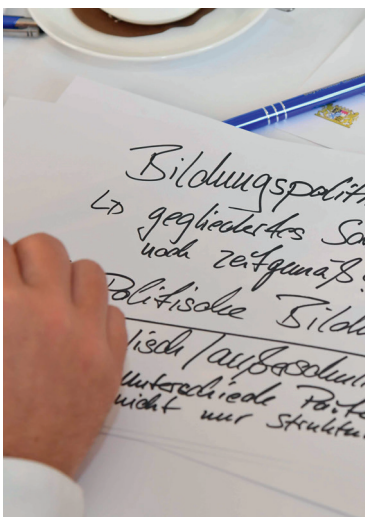 Bildungspoliti
↳ gegliedertes Sc
noch zeitgemäß?
Politische Bildu
lisch / außerschuli
Unterschiede Parte
nicht nur Struktu